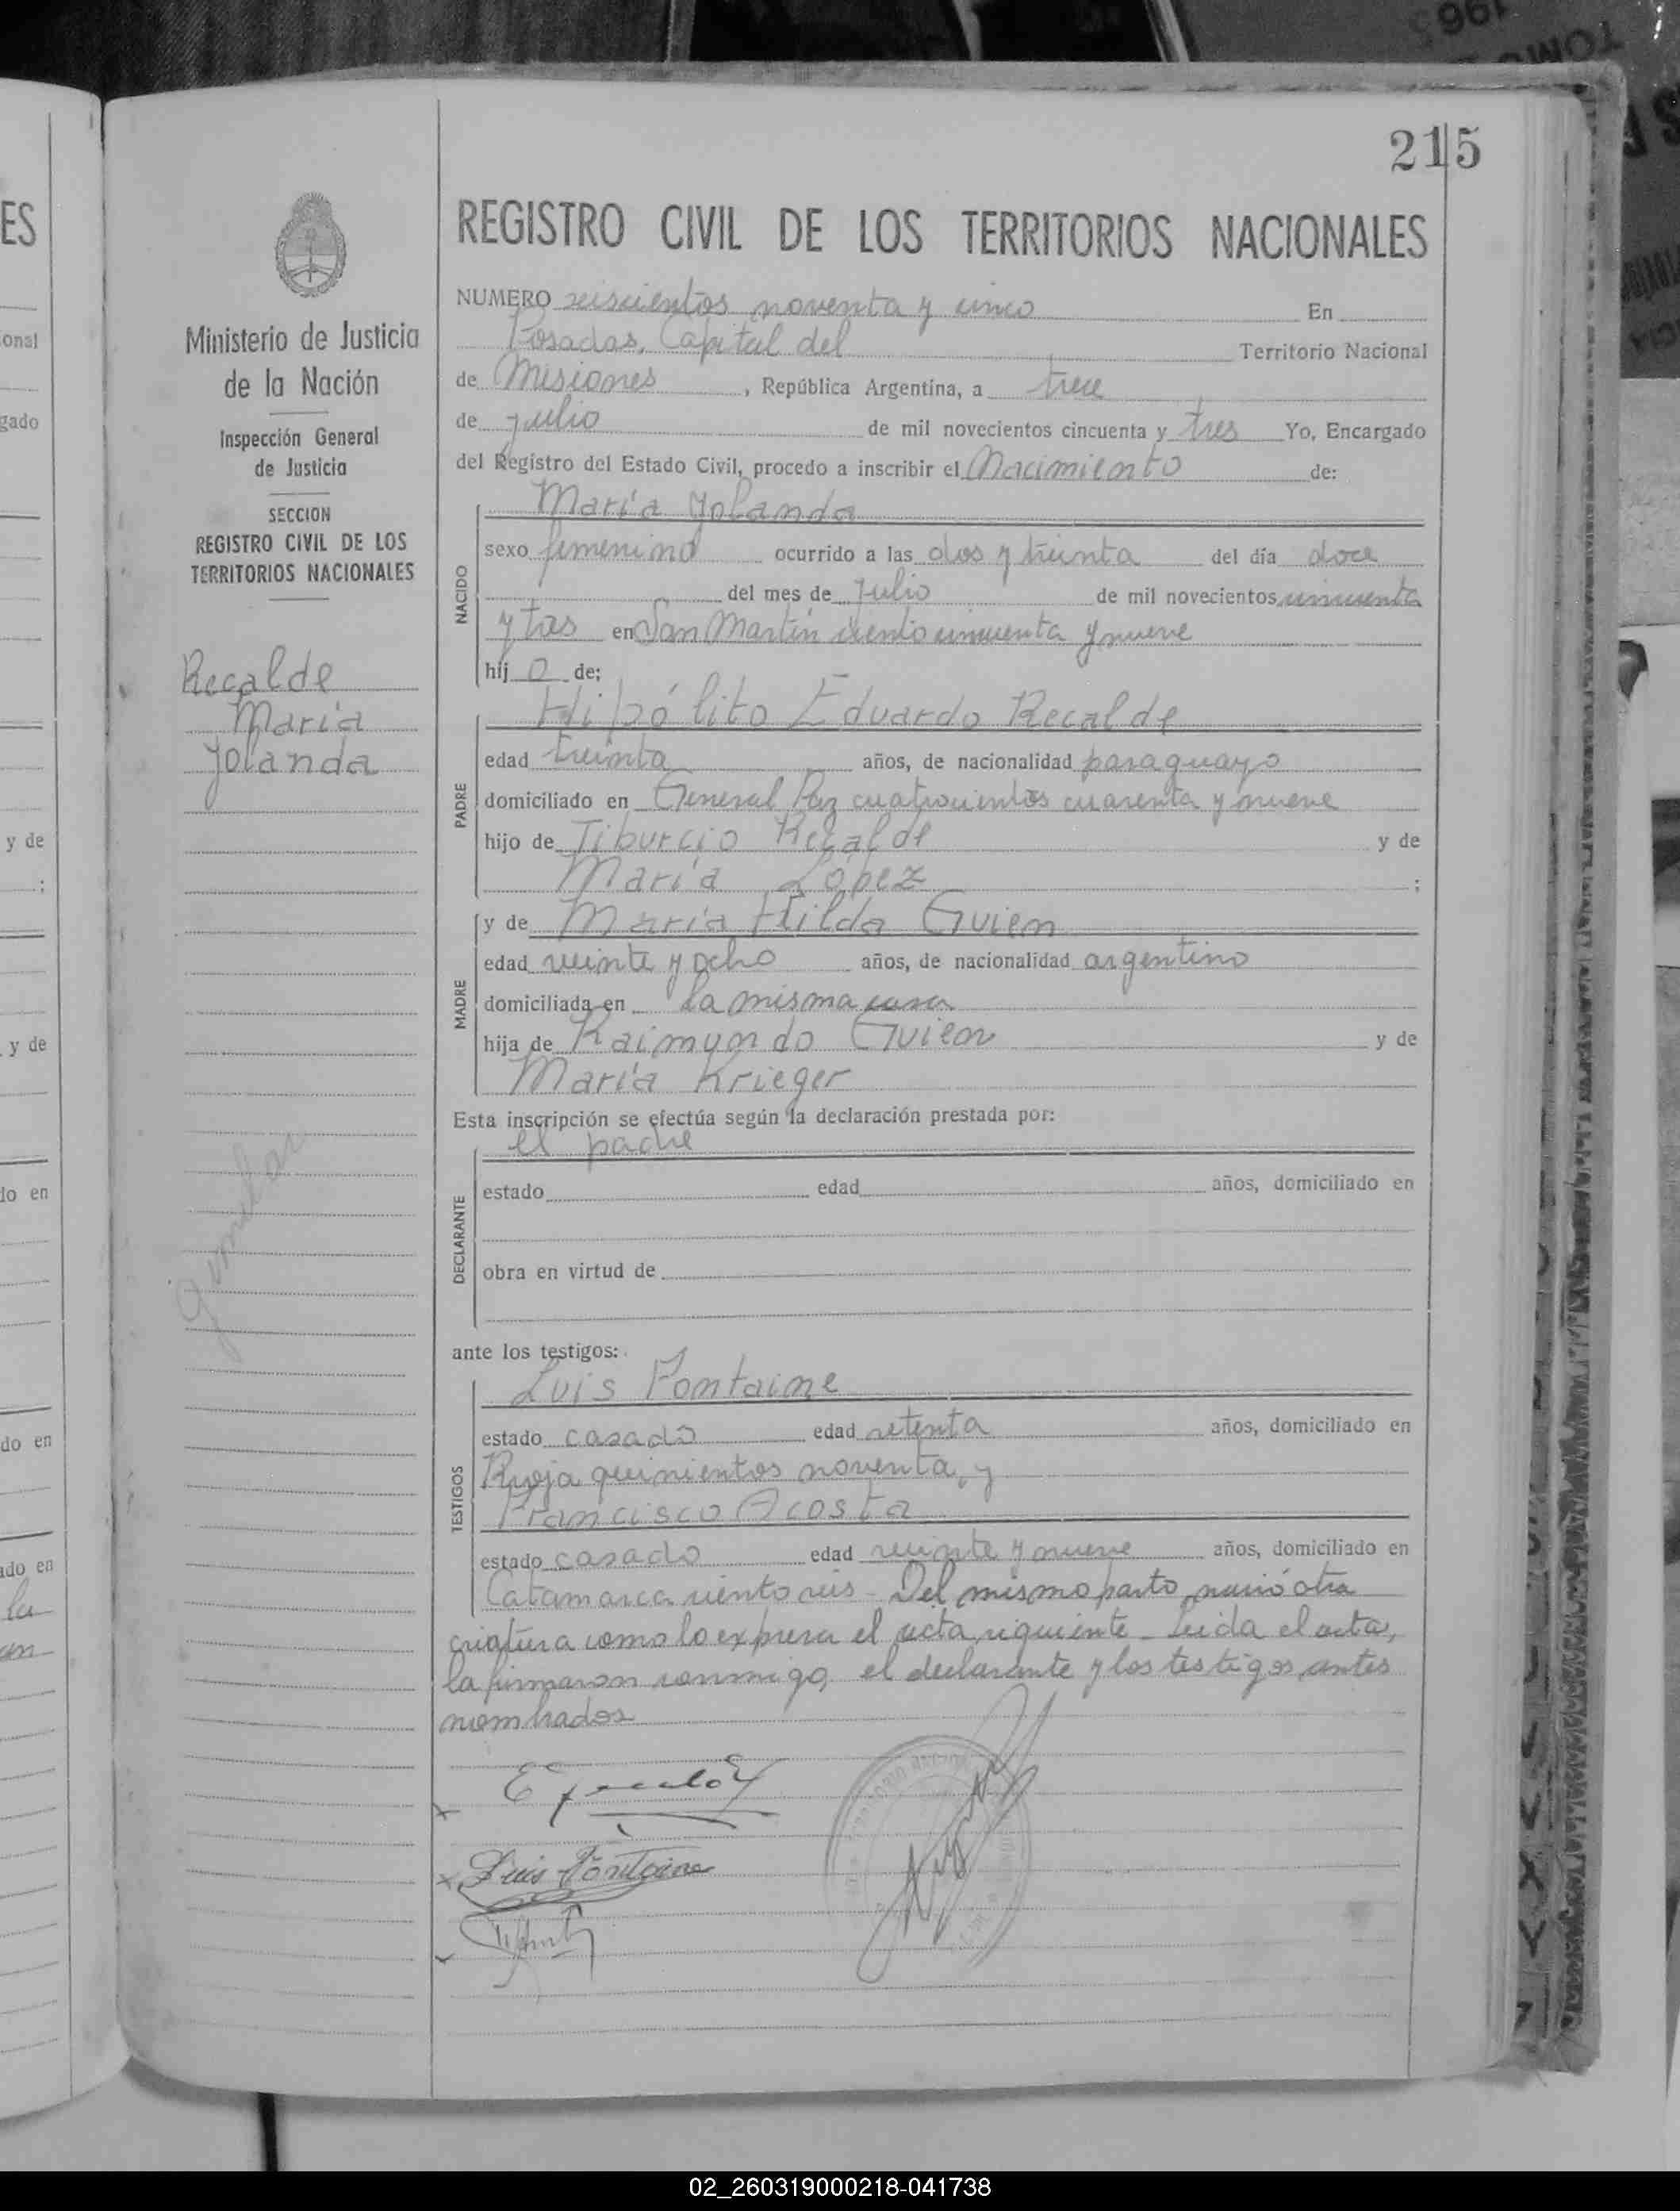 1965
TOMO
215
ES
REGISTRO CIVIL DE LOS TERRITORIOS NACIONALES
NUMERO seiscientos noventa y cinco En
Posadas, Capital del Territorio Nacional
de Misiones, República Argentina, a trece
de julio de mil novecientos cincuenta y tres Yo, Encargado
del Registro del Estado Civil, procedo a inscribir el Nacimiento de:
Ministerio de Justicia
de la Nación
Inspección General
de Justicia
SECCION
REGISTRO CIVIL DE LOS
TERRITORIOS NACIONALES
Recalde
María
Yolanda
Gemelar
NACIDO
María Yolanda
sexo femenino ocurrido a las dos y treinta del día doce
del mes de Julio de mil novecientos cincuenta
y tres en San Martín ciento cincuenta y nueve
hij o de;
PADRE
Hipólito Eduardo Recalde
edad treinta años, de nacionalidad paraguayo
domiciliado en General Paz cuatrocientos cuarenta y nueve
hijo de Tiburcio Recalde y de
María López ;
MADRE
y de María Hilda Guien
edad veinte y ocho años, de nacionalidad argentino
domiciliada en la misma casa
hija de Raimundo Guien y de
María Krieger
Esta inscripción se efectúa según la declaración prestada por:
DECLARANTE
el padre
estado edad años, domiciliado en
obra en virtud de
ante los testigos:
TESTIGOS
Luis Fontaine
estado casado edad setenta años, domiciliado en
Rioja quinientos noventa, y
Francisco Acosta
estado casado edad veinte y nueve años, domiciliado en
Catamarca ciento seis - Del mismo parto nació otra
criatura como lo expresa el acta siguiente - Leida el acta,
la firmaron conmigo, el declarante y los testigos antes
nombrados
Luis Fontaine
onal
gado
y de
;
y de
do en
do en
ado en
la
02_260319000218-041738